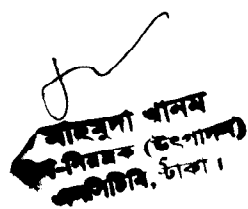 মাহমুদা খানম
-নিয়ন্ত্রক (উৎপাদন)
এনসিটিবি, ঢাকা।